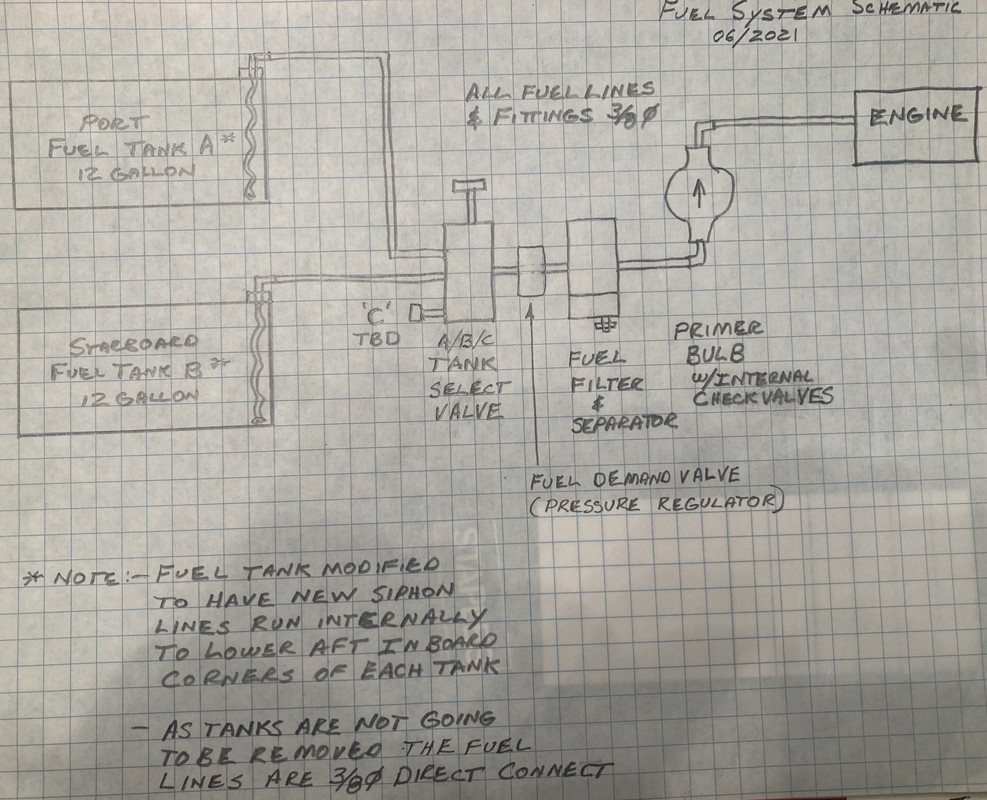 FUEL SYSTEM SCHEMATIC
06/2021
ALL FUEL LINES
& FITTINGS 3/8Ø
ENGINE
PORT
FUEL TANK A*
12 GALLON
STARBOARD
FUEL TANK B*
12 GALLON
'C'
TBD
A/B/C
TANK
SELECT
VALVE
FUEL
FILTER
&
SEPARATOR
PRIMER
BULB
W/INTERNAL
CHECK VALVES
FUEL DEMAND VALVE
(PRESSURE REGULATOR)
* NOTE:- FUEL TANK MODIFIED
TO HAVE NEW SIPHON
LINES RUN INTERNALLY
TO LOWER AFT INBOARD
CORNERS OF EACH TANK
- AS TANKS ARE NOT GOING
TO BE REMOVED THE FUEL
LINES ARE 3/8Ø DIRECT CONNECT